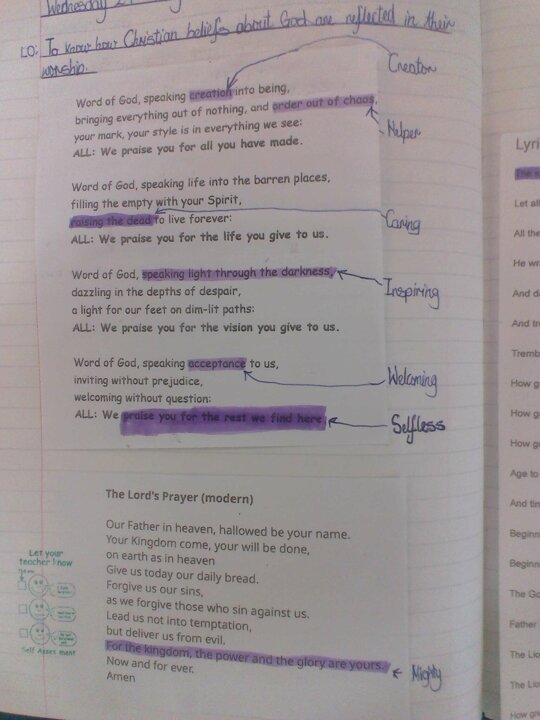 Wednesday
LO: To know how Christian beliefs about God are reflected in their
worship.
Creator
Word of God, speaking creation into being,
bringing everything out of nothing, and order out of chaos,
Helper
your mark, your style is in everything we see:
ALL: We praise you for all you have made.
Word of God, speaking life into the barren places,
filling the empty with your Spirit,
raising the dead to live forever:
Caring
ALL: We praise you for the life you give to us.
Word of God, speaking light through the darkness,
Inspiring
dazzling in the depths of despair,
a light for our feet on dim-lit paths:
ALL: We praise you for the vision you give to us.
Word of God, speaking acceptance to us,
Welcoming
inviting without prejudice,
welcoming without question:
ALL: We praise you for the rest we find here
Selfless
The Lord's Prayer (modern)
Our Father in heaven, hallowed be your name.
Your Kingdom come, your will be done,
on earth as in heaven
Give us today our daily bread.
Forgive us our sins,
as we forgive those who sin against us.
Lead us not into temptation,
but deliver us from evil.
For the kingdom, the power and the glory are yours.
Mighty
Now and for ever.
Amen
Let your
teacher know
Self Assessment
Lyri
Let all
All the
He wr
And d
And tr
Tremb
How g
How g
How g
Age to
And tin
Beginn
Beginn
The Go
Father
The Lio
The Lio
How gr